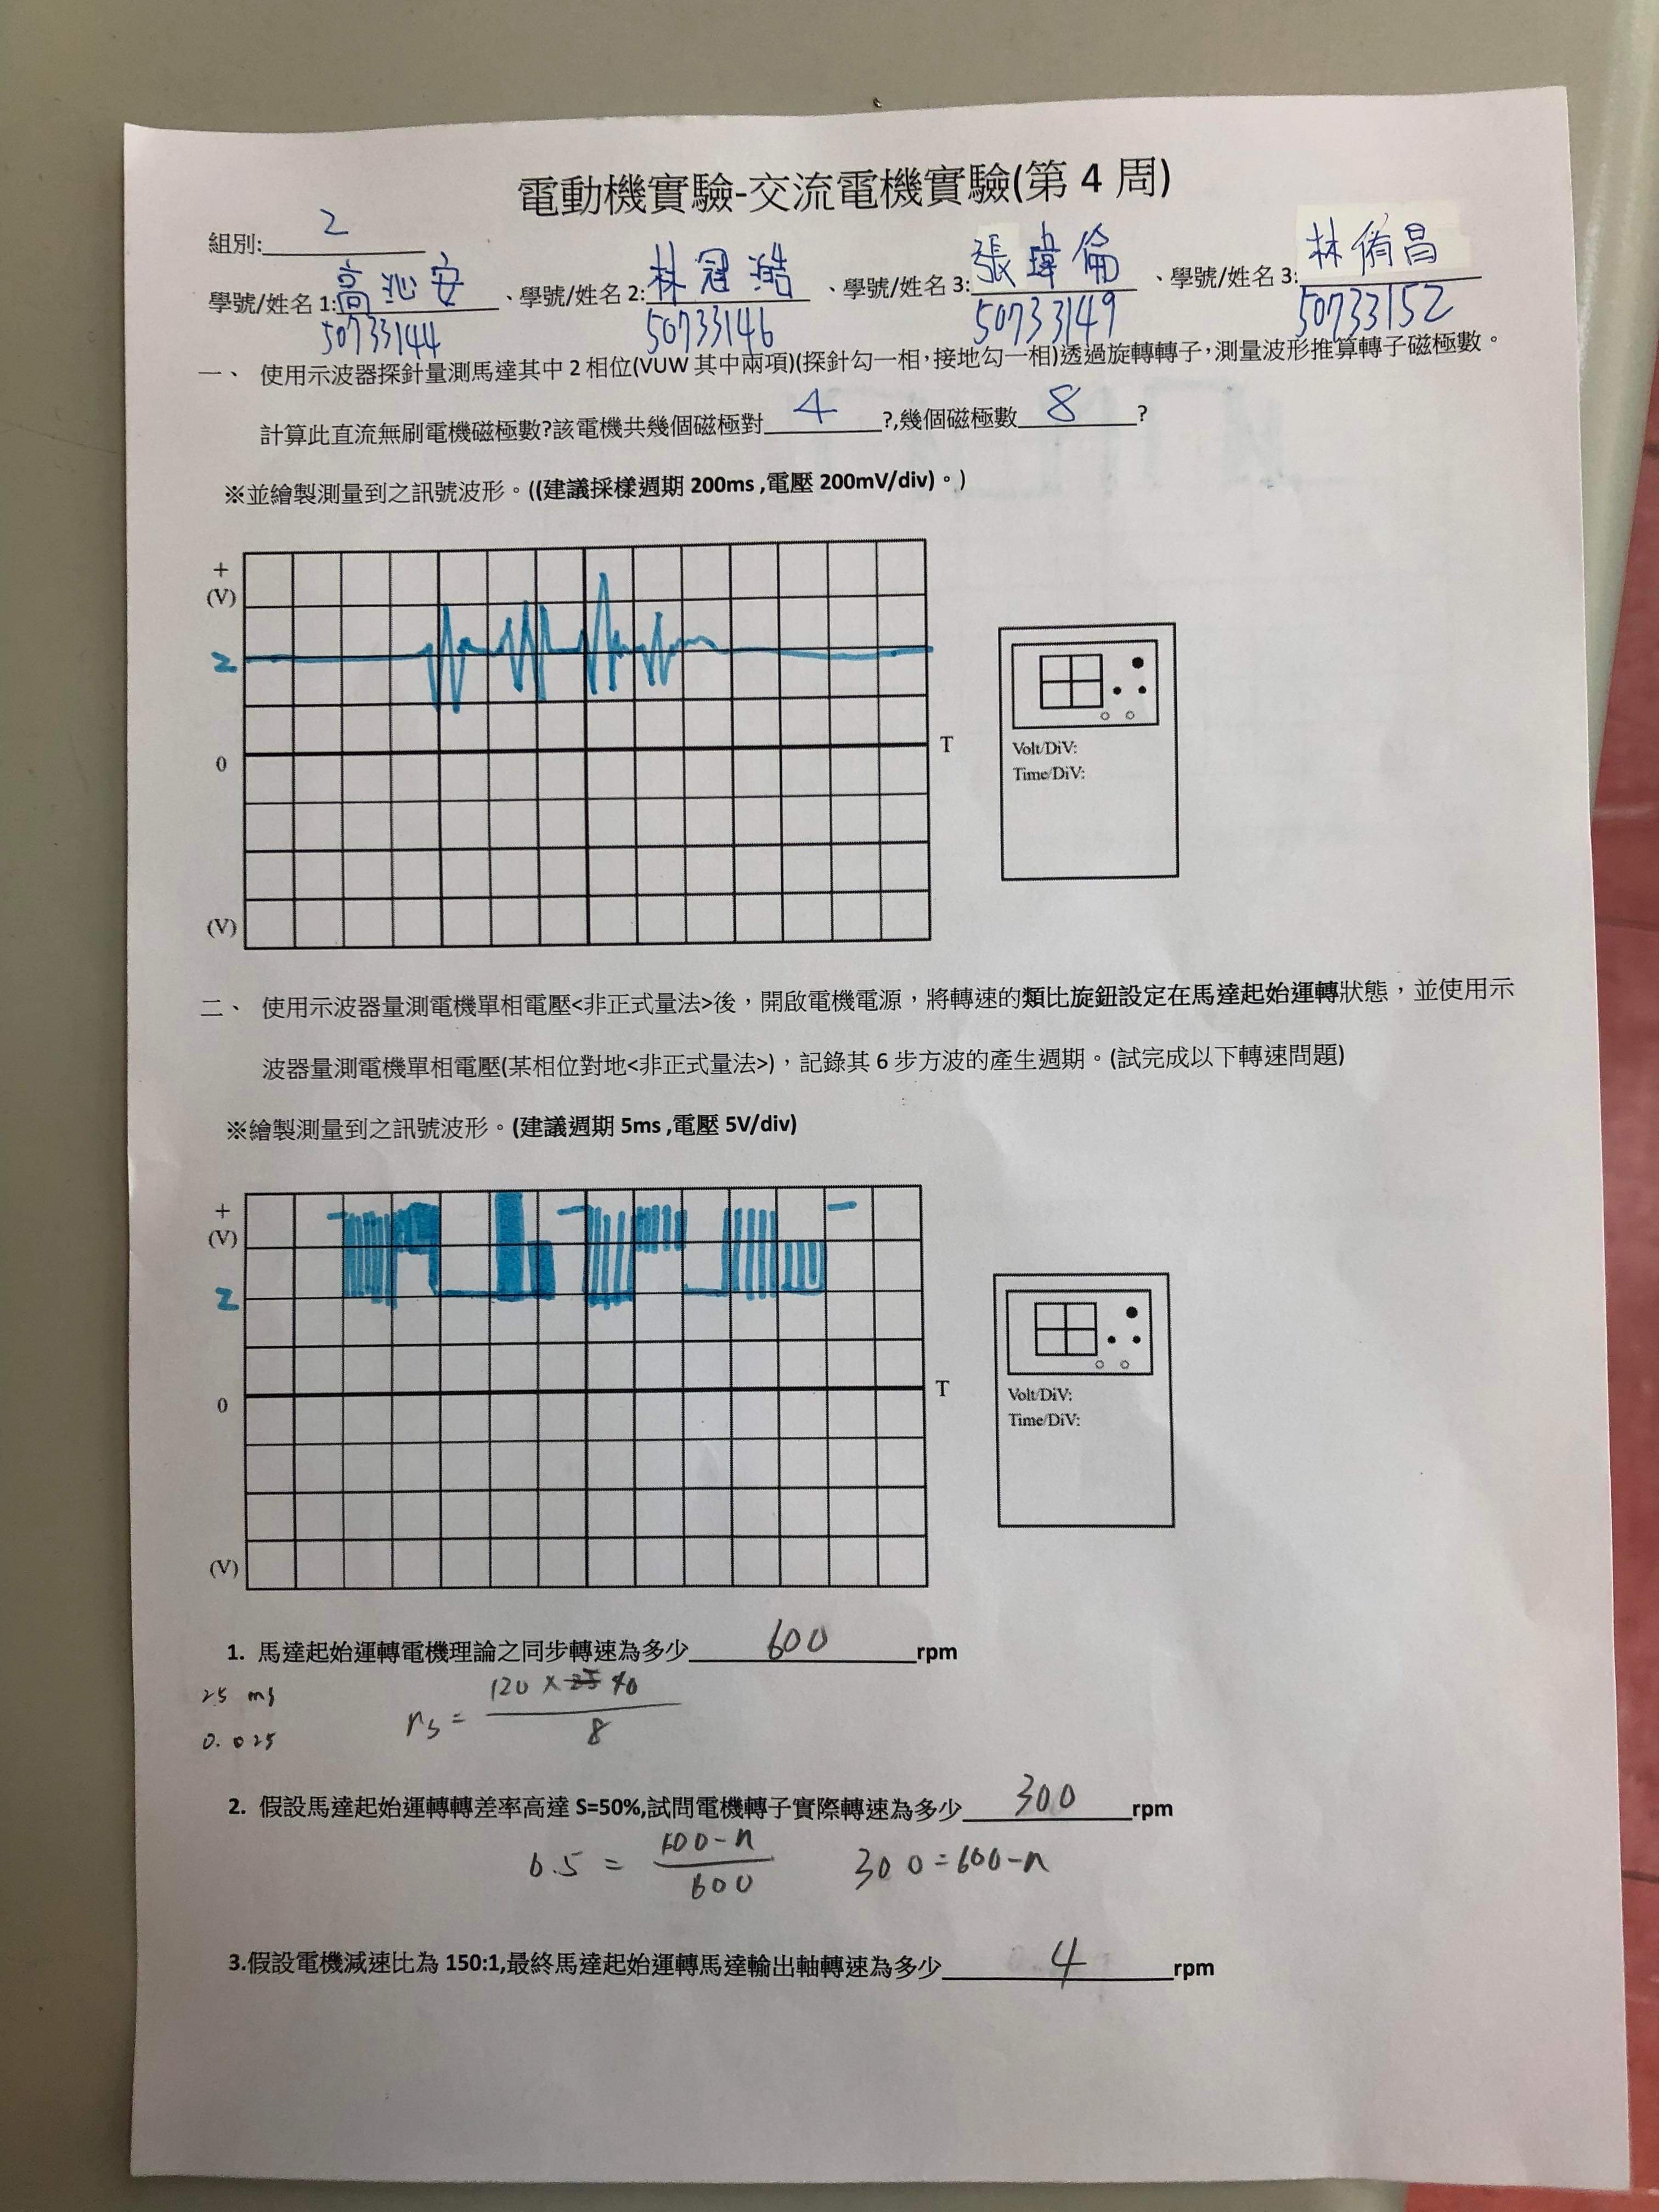 電動機實驗-交流電機實驗(第 4 周)
組別: 2
學號/姓名 1:高沁安、學號/姓名 2:林冠澔、學號/姓名 3:張瑋倫、學號/姓名 3:林侑昌
50733144 50733146 50733149 50733152
一、 使用示波器探針量測馬達其中 2 相位(VUW 其中兩項)(探針勾一相,接地勾一相)透過旋轉轉子,測量波形推算轉子磁極數。
計算此直流無刷電機磁極數?該電機共幾個磁極對 4 ?,幾個磁極數 8 ?
※並繪製測量到之訊號波形。((建議採樣週期 200ms ,電壓 200mV/div)。)
+
(V)
2
0
T
(V)
Volt/DiV:
Time/DiV:
二、 使用示波器量測電機單相電壓<非正式量法>後,開啟電機電源,將轉速的類比旋鈕設定在馬達起始運轉狀態,並使用示
波器量測電機單相電壓(某相位對地<非正式量法>),記錄其 6 步方波的產生週期。(試完成以下轉速問題)
※繪製測量到之訊號波形。(建議週期 5ms ,電壓 5V/div)
+
(V)
2
0
T
(V)
Volt/DiV:
Time/DiV:
1. 馬達起始運轉電機理論之同步轉速為多少 600 rpm
25 ms
0.025
ns = 120 × 40
8
2. 假設馬達起始運轉轉差率高達 S=50%,試問電機轉子實際轉速為多少 300 rpm
0.5 = 600-n
600
300=600-n
3.假設電機減速比為 150:1,最終馬達起始運轉馬達輸出軸轉速為多少 4 rpm